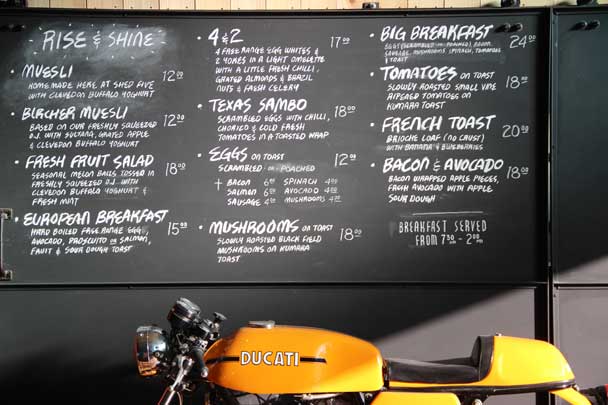 RISE & SHINE
MUESLI 12.00
HOME MADE HERE AT SHED FIVE
WITH CLEVEDON BUFFALO YOGHURT
BIRCHER MUESLI 12.00
BASED ON OUR FRESHLY SQUEEZED
O.J. WITH SULTANA, GRATED APPLE
& CLEVEDON BUFFALO YOGHURT
FRESH FRUIT SALAD 18.00
SEASONAL MELON BALLS TOSSED IN
FRESHLY SQUEEZED O.J. WITH
CLEVEDON BUFFALO YOGHURT &
FRESH MINT
EUROPEAN BREAKFAST 15.00
HARD BOILED FREE RANGE EGG
AVOCADO, PROSCIUTTO OR SALMON,
FRUIT & SOUR DOUGH TOAST
4 & 2 17.00
4 FREE RANGE EGG WHITES &
2 YOKES IN A LIGHT OMELETTE
WITH A LITTLE FRESH CHILLI,
GRATED ALMONDS & BRAZIL
NUTS & FRESH CELERY
TEXAS SAMBO 18.00
SCRAMBLED EGGS WITH CHILLI,
CHORIZO & COLD FRESH
TOMATOES IN A TOASTED WRAP
EGGS ON TOAST 12.00
SCRAMBLED OR POACHED
+ BACON 6.00 SPINACH 4.00
SALMON 6.00 AVOCADO 4.00
SAUSAGE 4.00 MUSHROOMS 4.00
MUSHROOMS ON TOAST 18.00
SLOWLY ROASTED BLACK FIELD
MUSHROOMS ON KUMARA
TOAST
BIG BREAKFAST 24.00
EGGS (SCRAMBLED OR POACHED), BACON,
SAUSAGE, MUSHROOMS, SPINACH, TOMATOES
& TOAST
TOMATOES ON TOAST 18.00
SLOWLY ROASTED SMALL VINE
RIPENED TOMATOES ON
KUMARA TOAST
FRENCH TOAST 20.00
BRIOCHE LOAF (NO CRUST)
WITH BANANA & BLUEBERRIES
BACON & AVOCADO 18.00
BACON WRAPPED APPLE PIECES,
FRESH AVOCADO WITH APPLE
SOUR DOUGH
BREAKFAST SERVED
FROM 7.30 AM - 2.00 PM
DUCATI